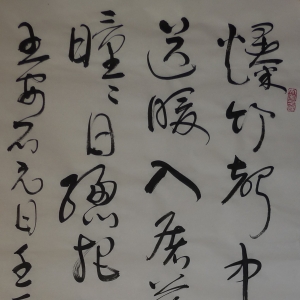 爆竹聲中
送暖入屠
瞳〻日總把
王安石元日壬